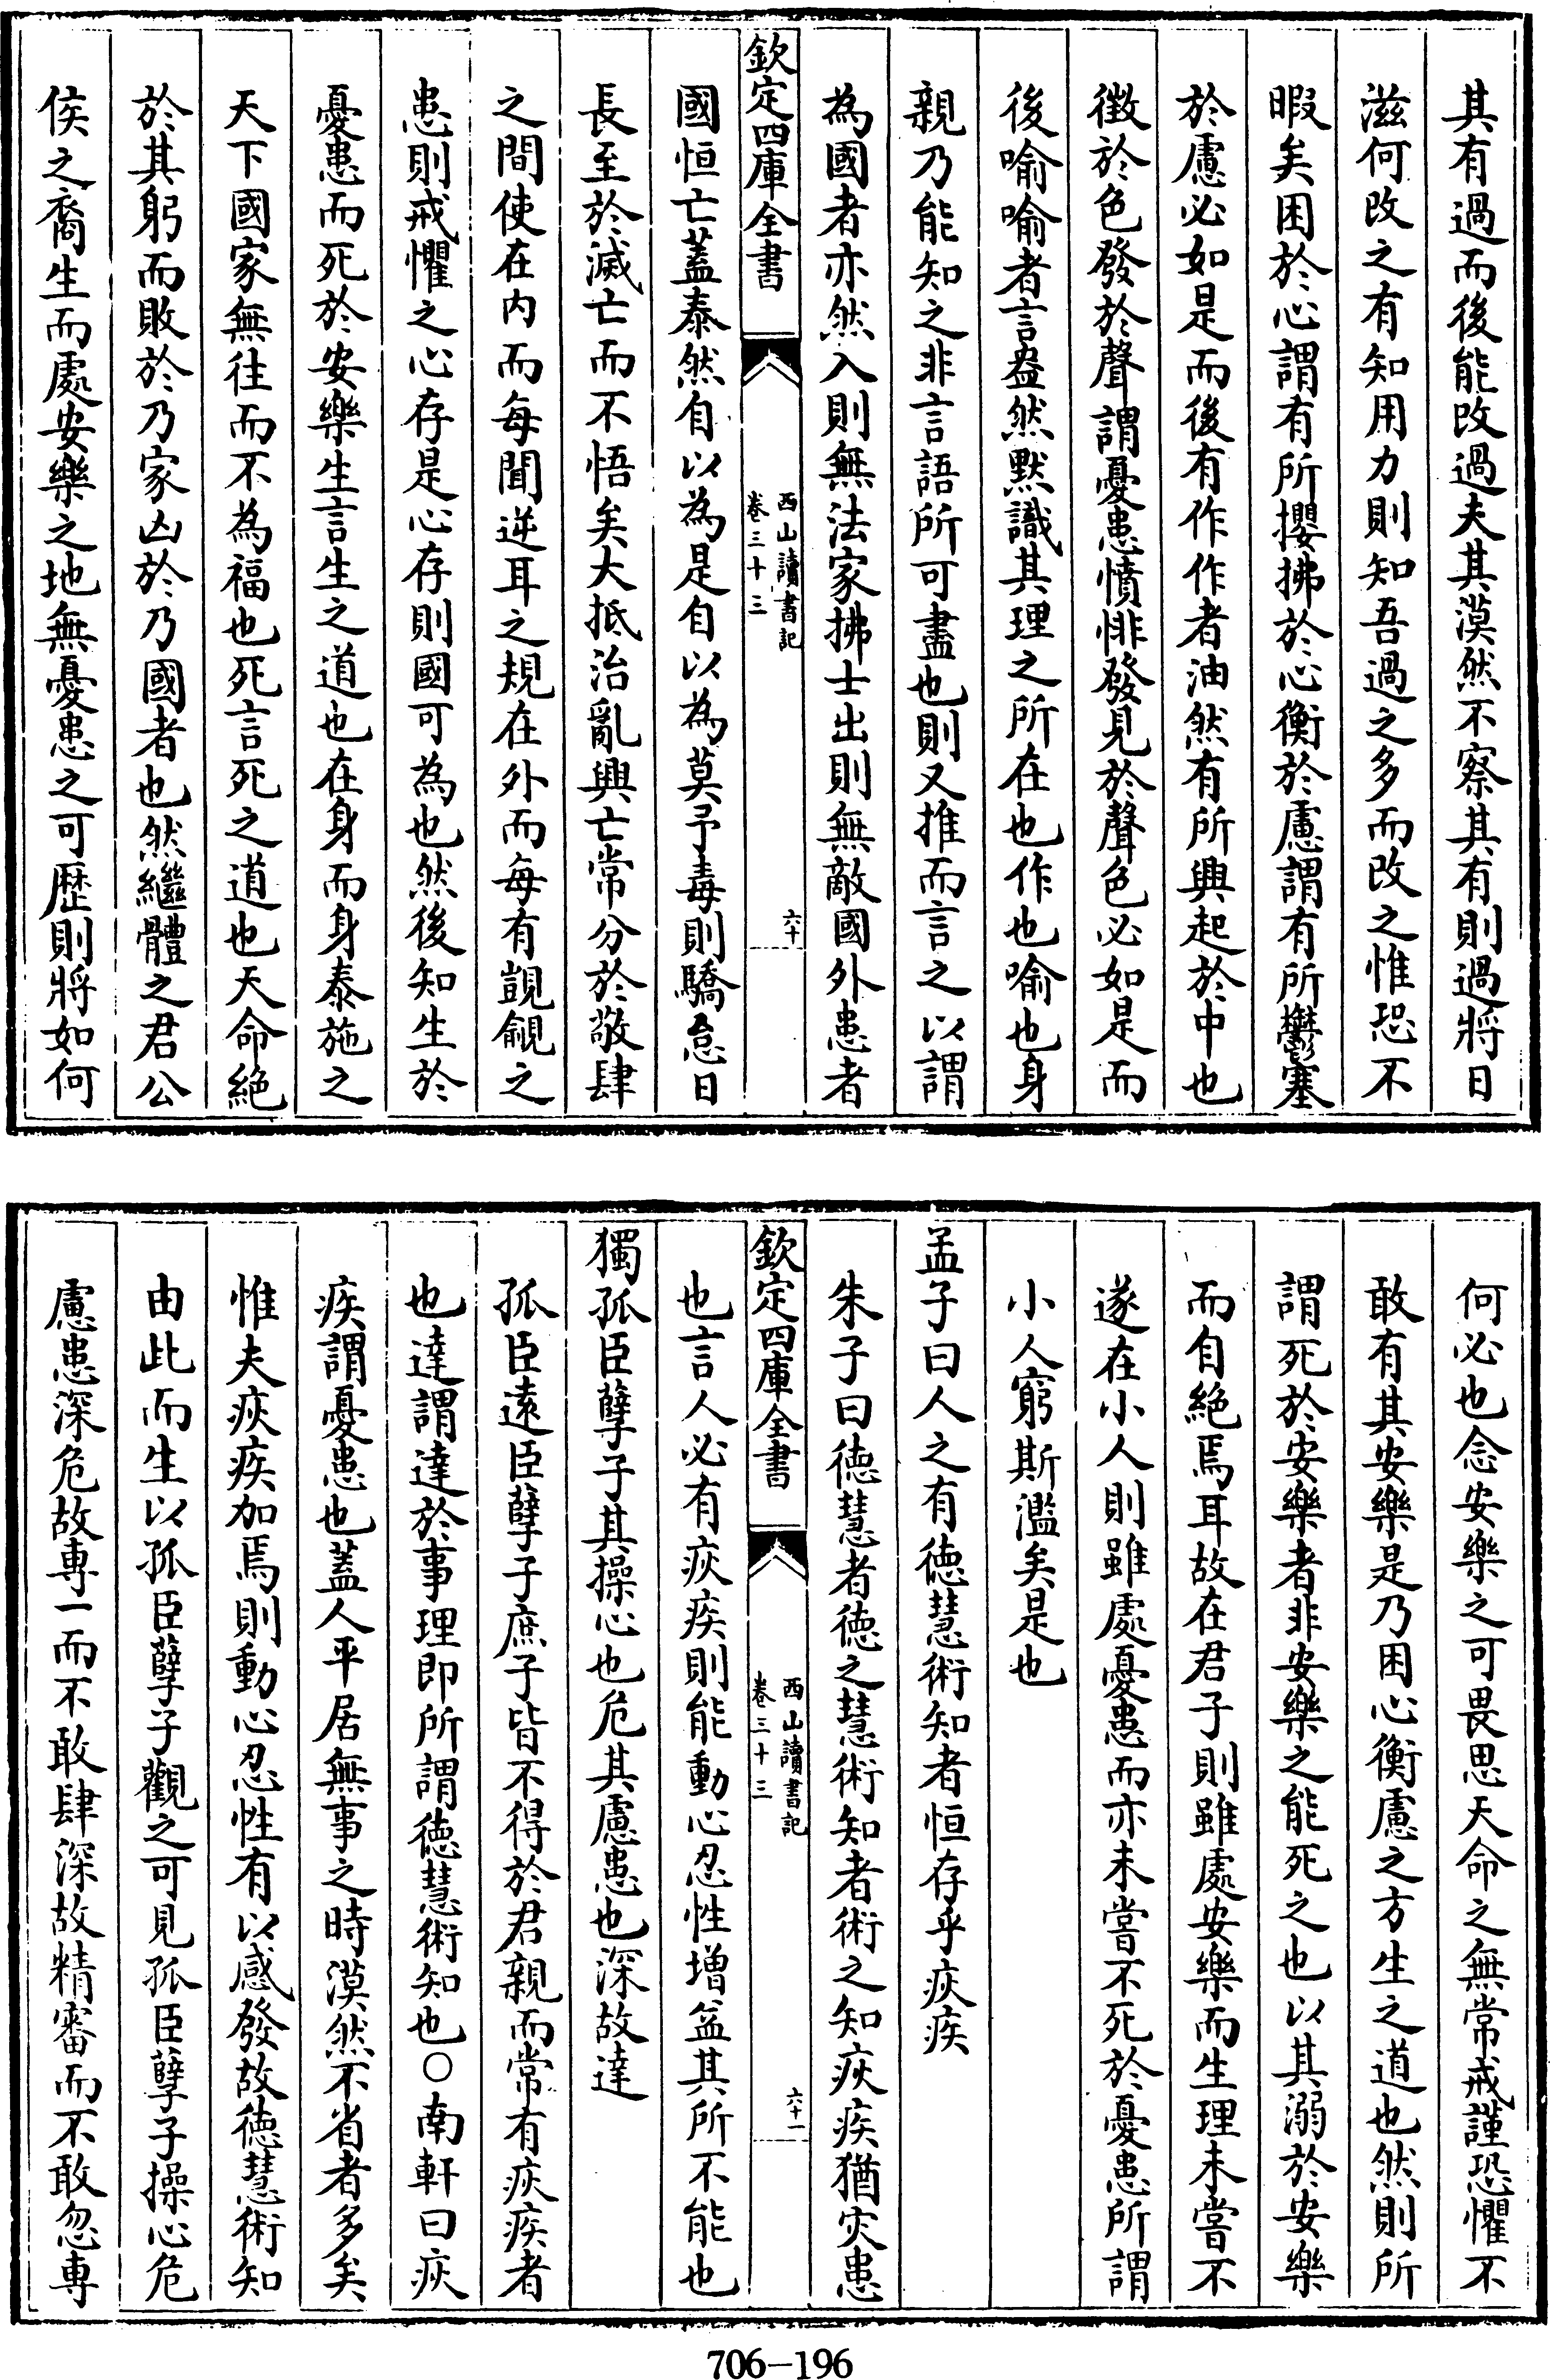 其有過而後能改過夫其漠然不察其有則過將日
滋何改之有知用力則知吾過之多而改之惟恐不
暇矣困於心謂有所攖拂於心衡於慮謂有所鬱塞
於慮必如是而後有作作者油然有所興起於中也
徵於色發於聲謂憂患憤悱發見於聲色必如是而
後喻喻者言盎然默識其理之所在也作也喻也身
親乃能知之非言語所可盡也則又推而言之以謂
為國者亦然入則無法家拂士出則無敵國外患者
欽定四庫全書
西山讀書記
卷三十三
六十
國恒亡蓋泰然自以為是自以為莫予毒則驕怠日
長至於滅亡而不悟矣大抵治亂興亡常分於敬肆
之間使在内而每聞逆耳之規在外而每有覬覦之
患則戒懼之心存是心存則國可為也然後知生於
憂患而死於安樂生言生之道也在身而身泰施之
天下國家無往而不為福也死言死之道也天命絶
於其躬而敗於乃家凶於乃國者也然繼體之君公
侯之裔生而處安樂之地無憂患之可歴則將如何
何必也念安樂之可畏思天命之無常戒謹恐懼不
敢有其安樂是乃困心衡慮之方生之道也然則所
謂死於安樂者非安樂之能死之也以其溺於安樂
而自絶焉耳故在君子則雖處安樂而生理未嘗不
遂在小人則雖處憂患而亦未嘗不死於憂患所謂
小人窮斯濫矣是也
孟子曰人之有德慧術知者恒存乎疢疾
朱子曰德慧者德之慧術知者術之知疢疾猶災患
欽定四庫全書
西山讀書記
卷三十三
六十一
也言人必有疢疾則能動心忍性增益其所不能也
獨孤臣孽子其操心也危其慮患也深故達
孤臣遠臣孽子庶子皆不得於君親而常有疢疾者
也達謂達於事理即所謂德慧術知也○南軒曰疢
疾謂憂患也蓋人平居無事之時漠然不省者多矣
惟夫疢疾加焉則動心忍性有以感發故德慧術知
由此而生以孤臣孽子觀之可見孤臣孽子操心危
慮患深危故専一而不敢肆深故精審而不敢忽専
706-196